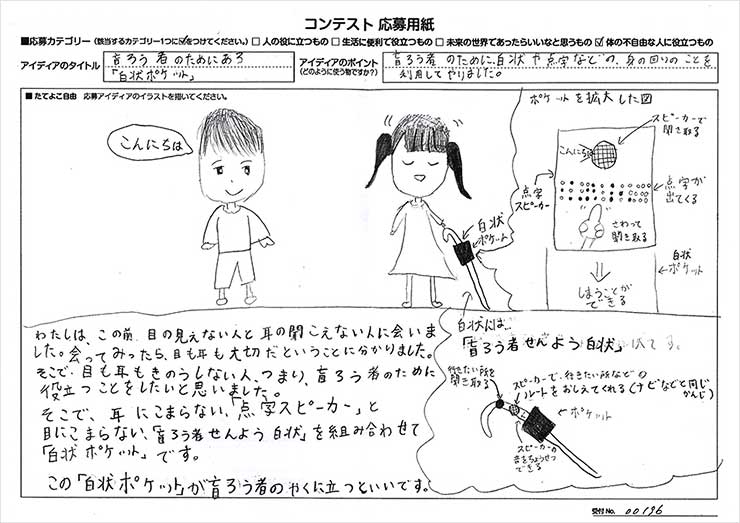 コンテスト 応募用紙
■応募カテゴリー (該当するカテゴリー1つに☑をつけてください。) □ 人の役に立つもの □ 生活に便利で役立つもの □ 未来の世界であったらいいなと思うもの ☑ 体の不自由な人に役立つもの
アイディアのタイトル
盲ろう者のためにある
「白状ポケット」
アイディアのポイント
(どのように使う物ですか?)
盲ろう者のために、白状や点字などの、身の回りのことを
利用してやりました。
■たてよこ自由 応募アイディアのイラストを描いてください。
こんにちは
白状
ポケット
ポケットを拡大した図
スピーカーで
聞き取る
こんにちは
点字
スピーカー
点字が
出てくる
さわって
聞き取る
白状
ポケット
しまうことが
できる
わたしは、この前、目の見えない人と耳の聞こえない人に会いま
した。会ってみったら、目も耳も大切だということに分かりました。
そこで、目も耳もきのうしない人、つまり、盲ろう者のために
役立つことをしたいと思いました。
そこで、耳にこまらない、「点字スピーカー」と
目にこまらない、「盲ろう者せんよう白状」を組み合わせて
「白状ポケット」です。
この「白状ポケット」が盲ろう者のやくに立つといいです。
白状には…
「盲ろう者せんよう白状」
行きたい所を
聞き取る
スピーカーで、行きたい所などの
ルートをおしえてくれる(ナビなどと同じ
かんじ)
ポケット
スピーカーの
音をちょうせつ
できる
受付No. 00196